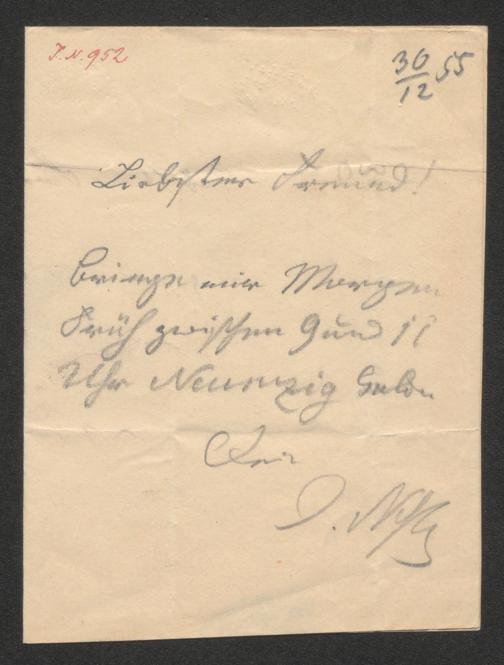 I. N. 952
30/12 55
Liebster Freund!
Bringe mir Morgen
Früh zwischen 9 und 11
Uhr Neunzig Gulden
Dein
J.